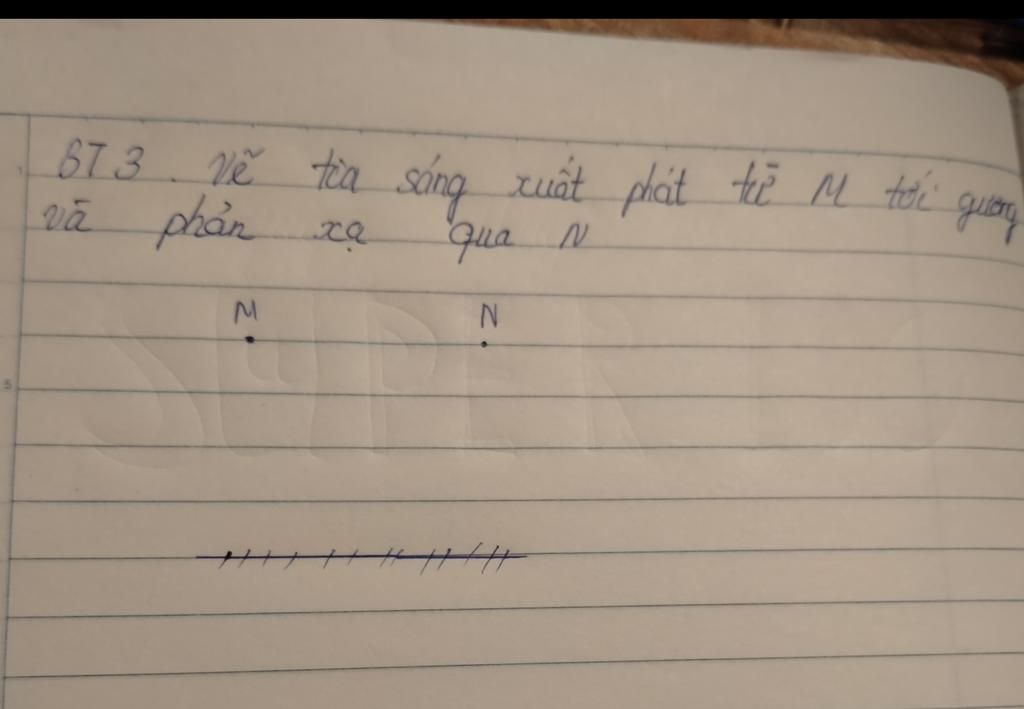 BT3. Vẽ tia sáng xuất phát từ M tới gương
và phản xạ qua N
M N
SUPER
5